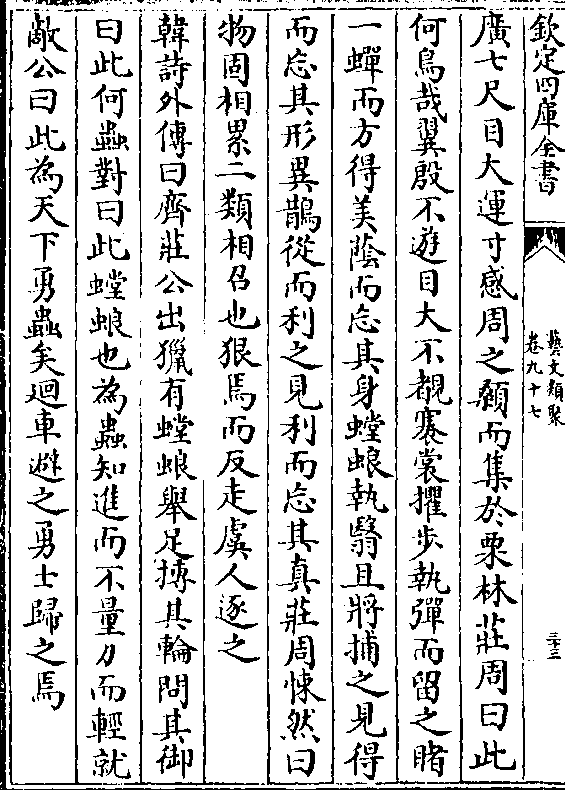 欽定四庫全書
藝文類聚
卷九十七
三十三
廣七尺目大運寸感周之顙而集於栗林莊周曰此
何鳥哉翼殷不遊目大不覩褰裳攫步執彈而留之睹
一蟬而方得美蔭而忘其身螳蜋執翳且將捕之見得
而忘其形異鵲從而利之見利而忘其真莊周悚然曰
物固相累二類相召也狠焉而反走虞人逐之
韓詩外傳曰齊莊公出獵有螳蜋舉足搏其輪問其御
曰此何蟲對曰此螳蜋也為蟲知進而不量力而輕就
敵公曰此為天下勇蟲矣迴車避之勇士歸之焉